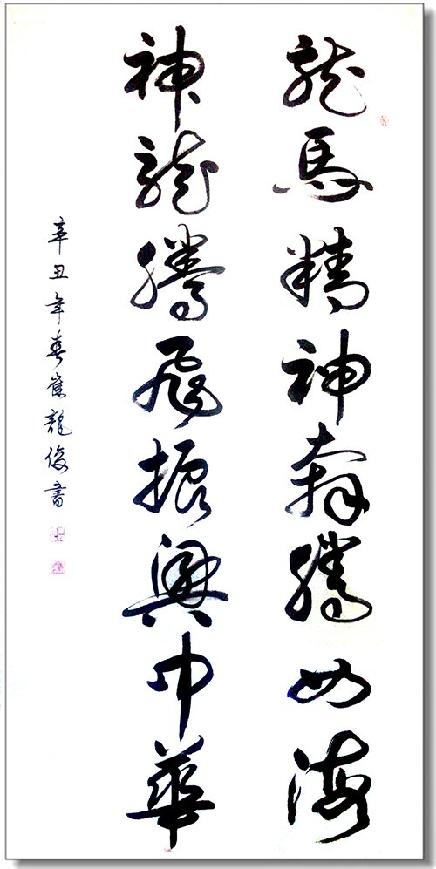 龍馬精神奔騰四海
神龍騰飛振興中華
辛丑年春崔龍俊書